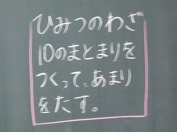 ひみつのわざ
10のまとまりを
つくって、あまり
をたす。